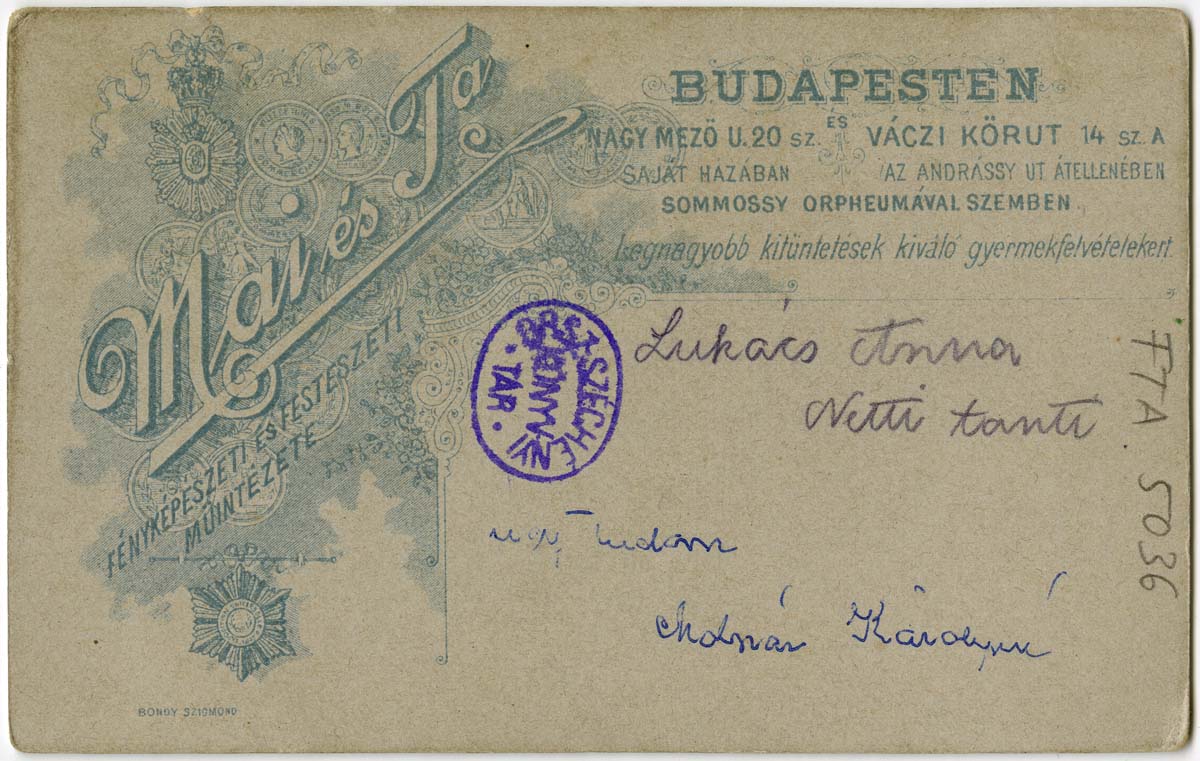 Mai és Ta
FÉNYKÉPÉSZETI ÉS FESTÉSZETI
MŰINTÉZETE
BUDAPESTEN
NAGY MEZŐ U. 20 SZ. ÉS VÁCZI KÖRUT 14 SZ. A
SAJÁT HAZÁBAN AZ ANDRÁSSY UT ÁTELLENÉBEN
SOMMOSSY ORPHEUMÁVAL SZEMBEN.
Legnagyobb kitüntetések kiváló gyermekfelvételekert.
ORSZ. SZÉCHÉNYI
KÖNYV
TÁR
Lukács Anna
Netti tanti
ugy tudom
Molnár Károlyné
FTA 5036
BONDY ZSIGMOND